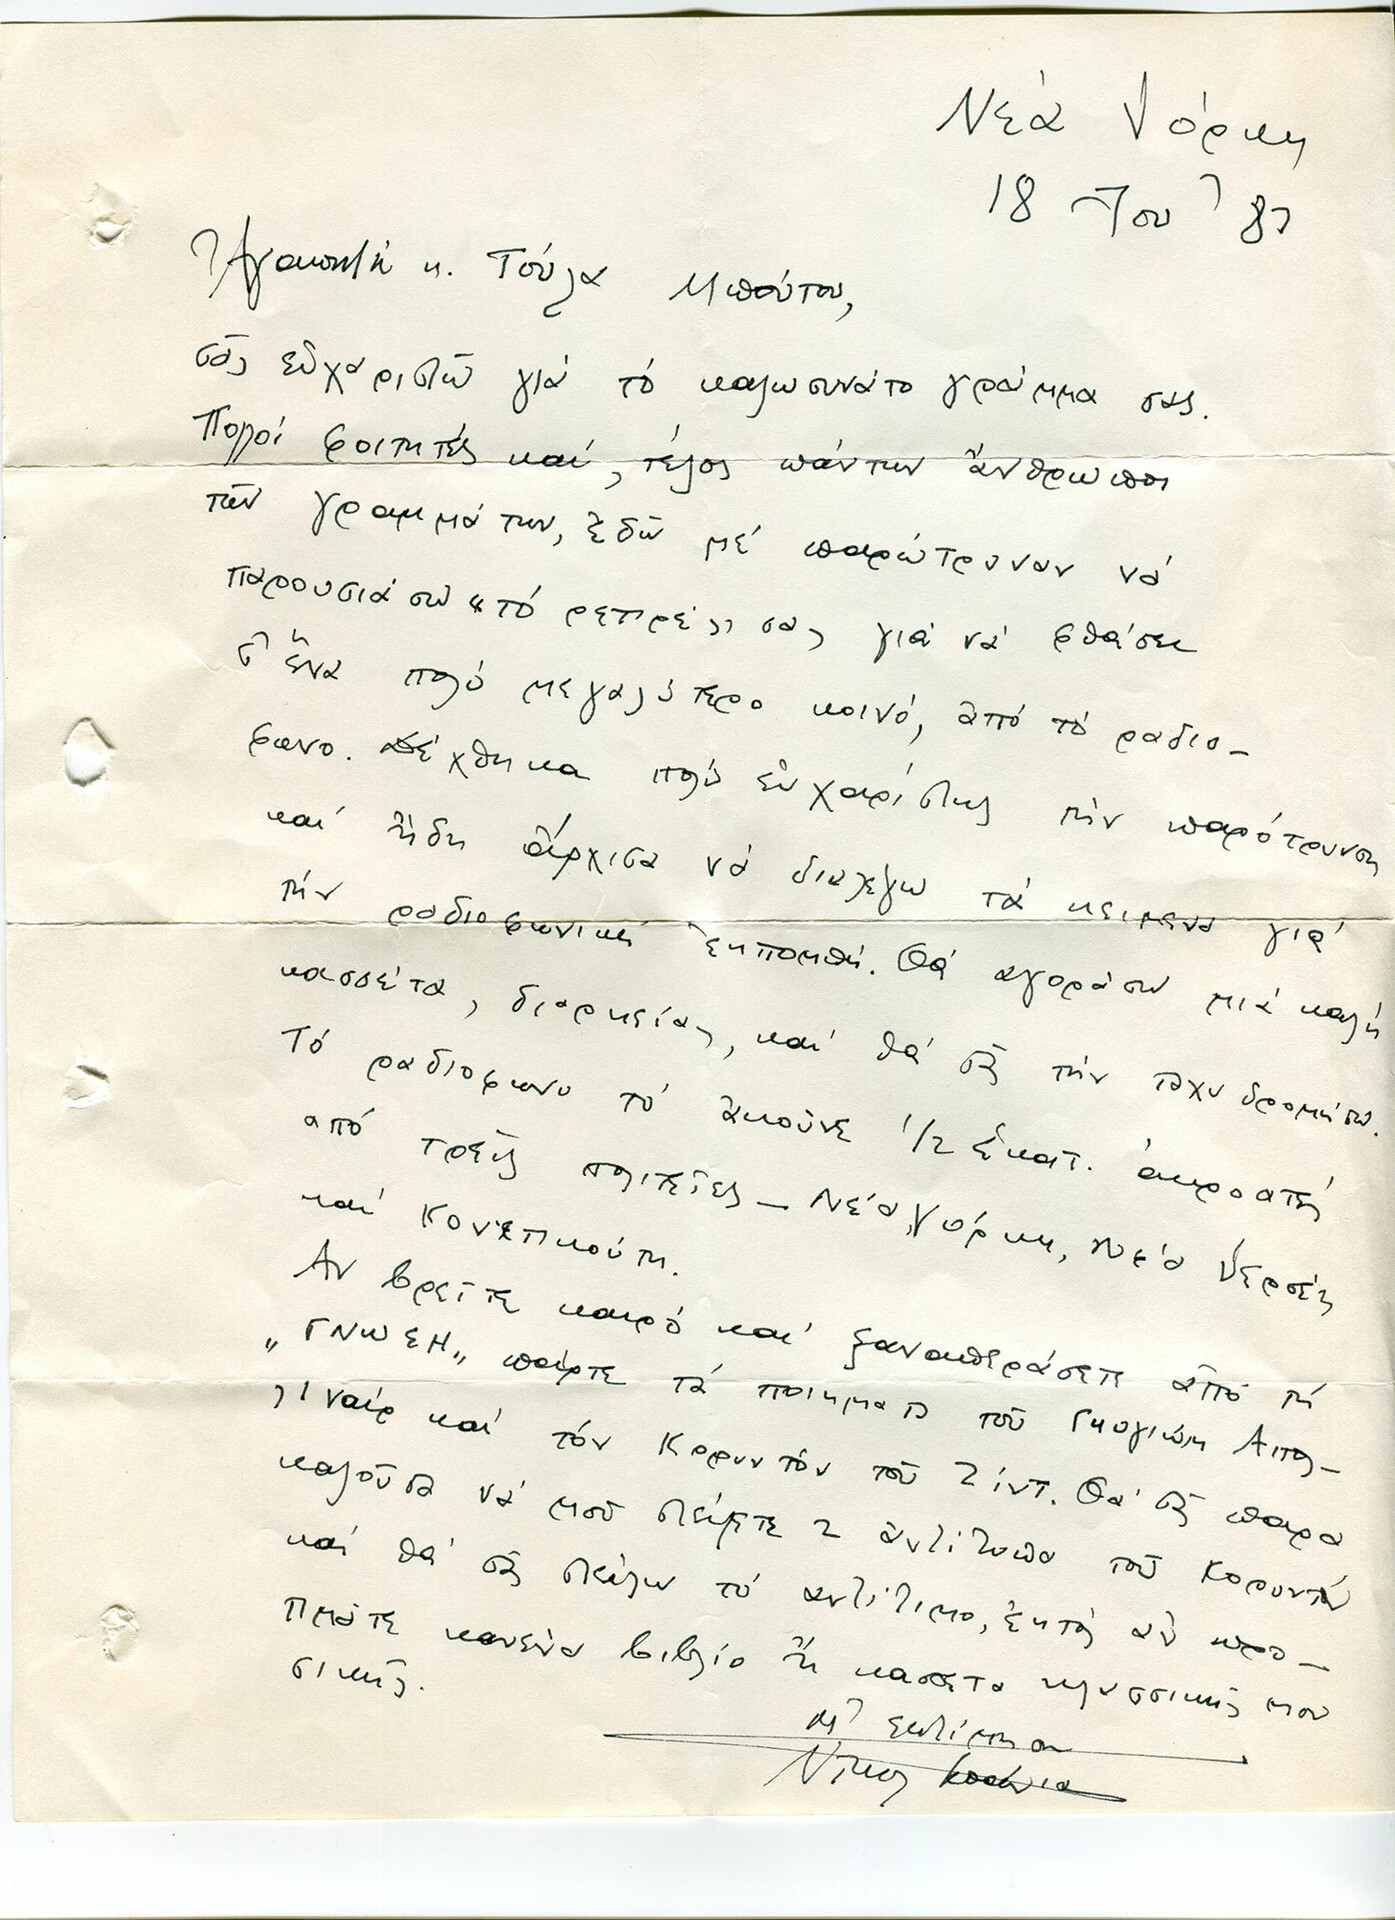 Νέα Υόρκη
18 Ιου '87
Ἀγαπητή κ. Τούλα Μπούτου,
σᾶς εὐχαριστῶ γιά τό καλωσυνάτο γράμμα σας.
Πολοί φοιτητές καί, τέλος πάντων ἄνθρωποι
τῶν γραμμάτων, ἐδῶ μέ παρώτρυναν νά
παρουσιάσω "τό ρετιρέ," σας γιά νά φθάσει
σ' ἕνα πολύ μεγαλύτερο κοινό, ἀπό τό ραδιο-
φωνο. Δέχθηκα πολύ εὐχαρίστως τήν παρότρυνση
καί ἤδη ἄρχισα νά διαλέγω τά κείμενα γιά
τήν ραδιοφωνική ἐκπομπή. Θά αγοράσω μιά καλή
κασσέτα, διαρκείας, καί θά σᾶς τήν ταχυδρομήσω.
Τό ραδιοφωνο τό ἀκοῦνε 1/2 ἑκατ. ἀκροατές
από τρεῖς πολιτεῖες – Νέα Υόρκη, Νέα Υερσέη
καί Κονέτικούτη.
Αν βρεῖτε καιρό καί ξαναπεράσετε ἀπό τή
"ΓΝΩΣΗ" πάρτε τά ποιηματα τοῦ Γκυγιώμ Απολ-
λιναίρ καί τόν Κορυντόν τοῦ Ζίντ. Θά σᾶς παρα
καλοῦσα νά μοῦ στείλετε 2 ἀντίτυπα τοῦ Κορυντόν
καί θά σᾶς στείλω τό αντίτιμο, ἐκτός ἀν προ-
τιμᾶτε κανένα βιβλίο ἤ κασσετα κλασσικῆς μου
σικῆς.
Μ' εκτίμηση
Νίκος